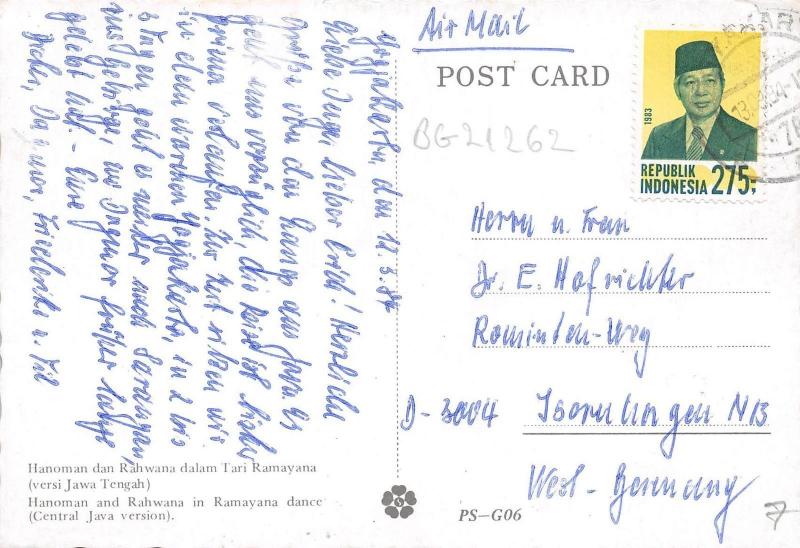 Air Mail
POST CARD
BG21262
1983
REPUBLIK
INDONESIA 275,-
Yogjakarta, den 12.3.84
Liebe Inge, lieber Erich! Herzliche
Grüße von der Insel aus Java. Es
geht uns vorzüglich, die Reise ist bisher
prima verlaufen. Zur Zeit sitzen wir
in dem warmen Yogjakarta, in 2 bis
3 Tagen geht es weiter nach Sarangan,
ins Gebirge, wo Ingmar früher lange
gelebt hat. - Eure
Dagmar, Friederike u. Till
Herrn u. Frau
Dr. E. Hofrichter
Rominten-Weg
D-3004 Isernhagen NB
West-Germany
Hanoman dan Rahwana dalam Tari Ramayana
(versi Jawa Tengah)
Hanoman and Rahwana in Ramayana dance
(Central Java version).
PS-G06
7